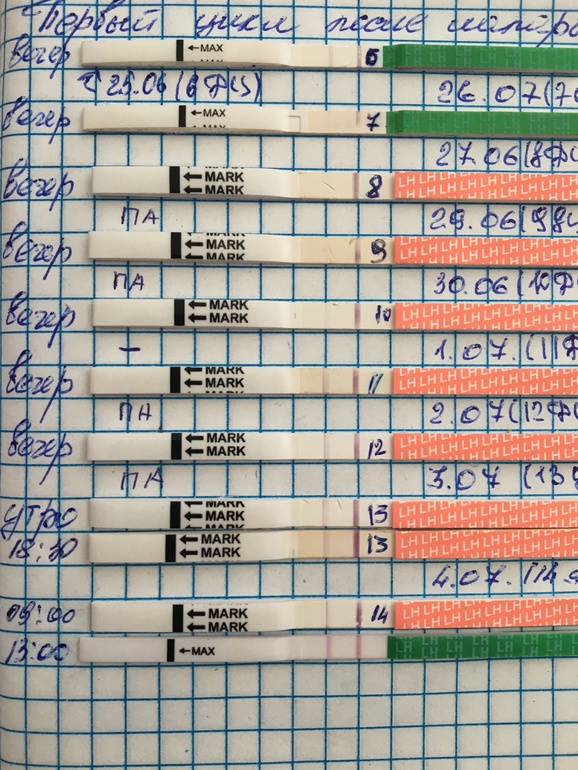 Первый цикл после
вечер ←MAX 6
25.06 (6ДЦ) 26.07(7
вечер ←MAX 7
27.06(8Д
вечер ←MARK ←MARK 8 LH LH LH LH LH LH LH
ПА 29.06(9
вечер ←MARK ←MARK 9 LH LH LH LH LH LH LH
ПА 30.06(10Д
вечер ←MARK ←MARK 10 LH LH LH LH LH LH LH
– 1.07.(11Д
вечер ←MARK ←MARK 11 LH LH LH LH LH LH LH
ПА 2.07(12Д
вечер ←MARK ←MARK 12 LH LH LH LH LH LH LH
ПА 3.07 (13
утро ←MARK ←MARK 13 LH LH LH LH LH LH LH
18:30 ←MARK ←MARK 13 LH LH LH LH LH LH LH
4.07.(14
09:00 ←MARK ←MARK 14 LH LH LH LH LH LH LH
13:00 ←MAX LH LH LH LH LH